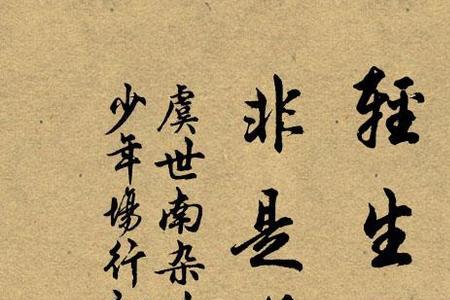 輕生
非是
虞世南杂
少年場行